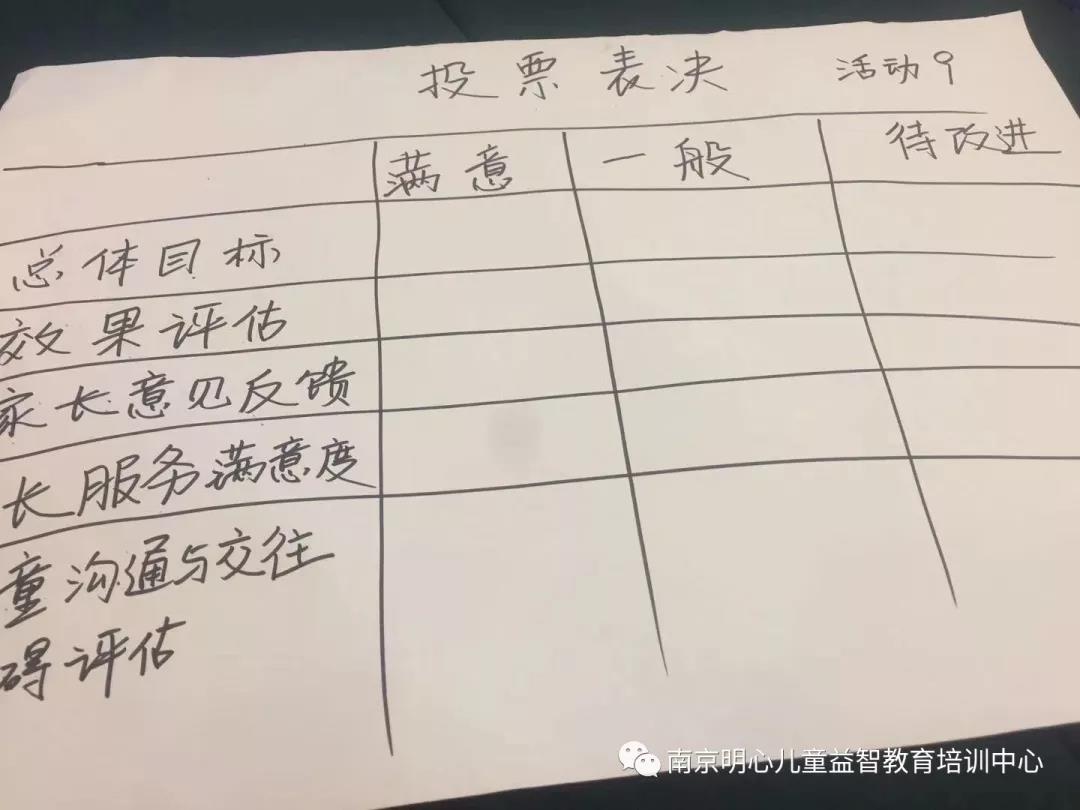 投票表决 活动9
满意 一般 待改进
总体目标
效果评估
家长意见反馈
长服务满意度
童沟通与交往
碍评估
南京明心儿童益智教育培训中心